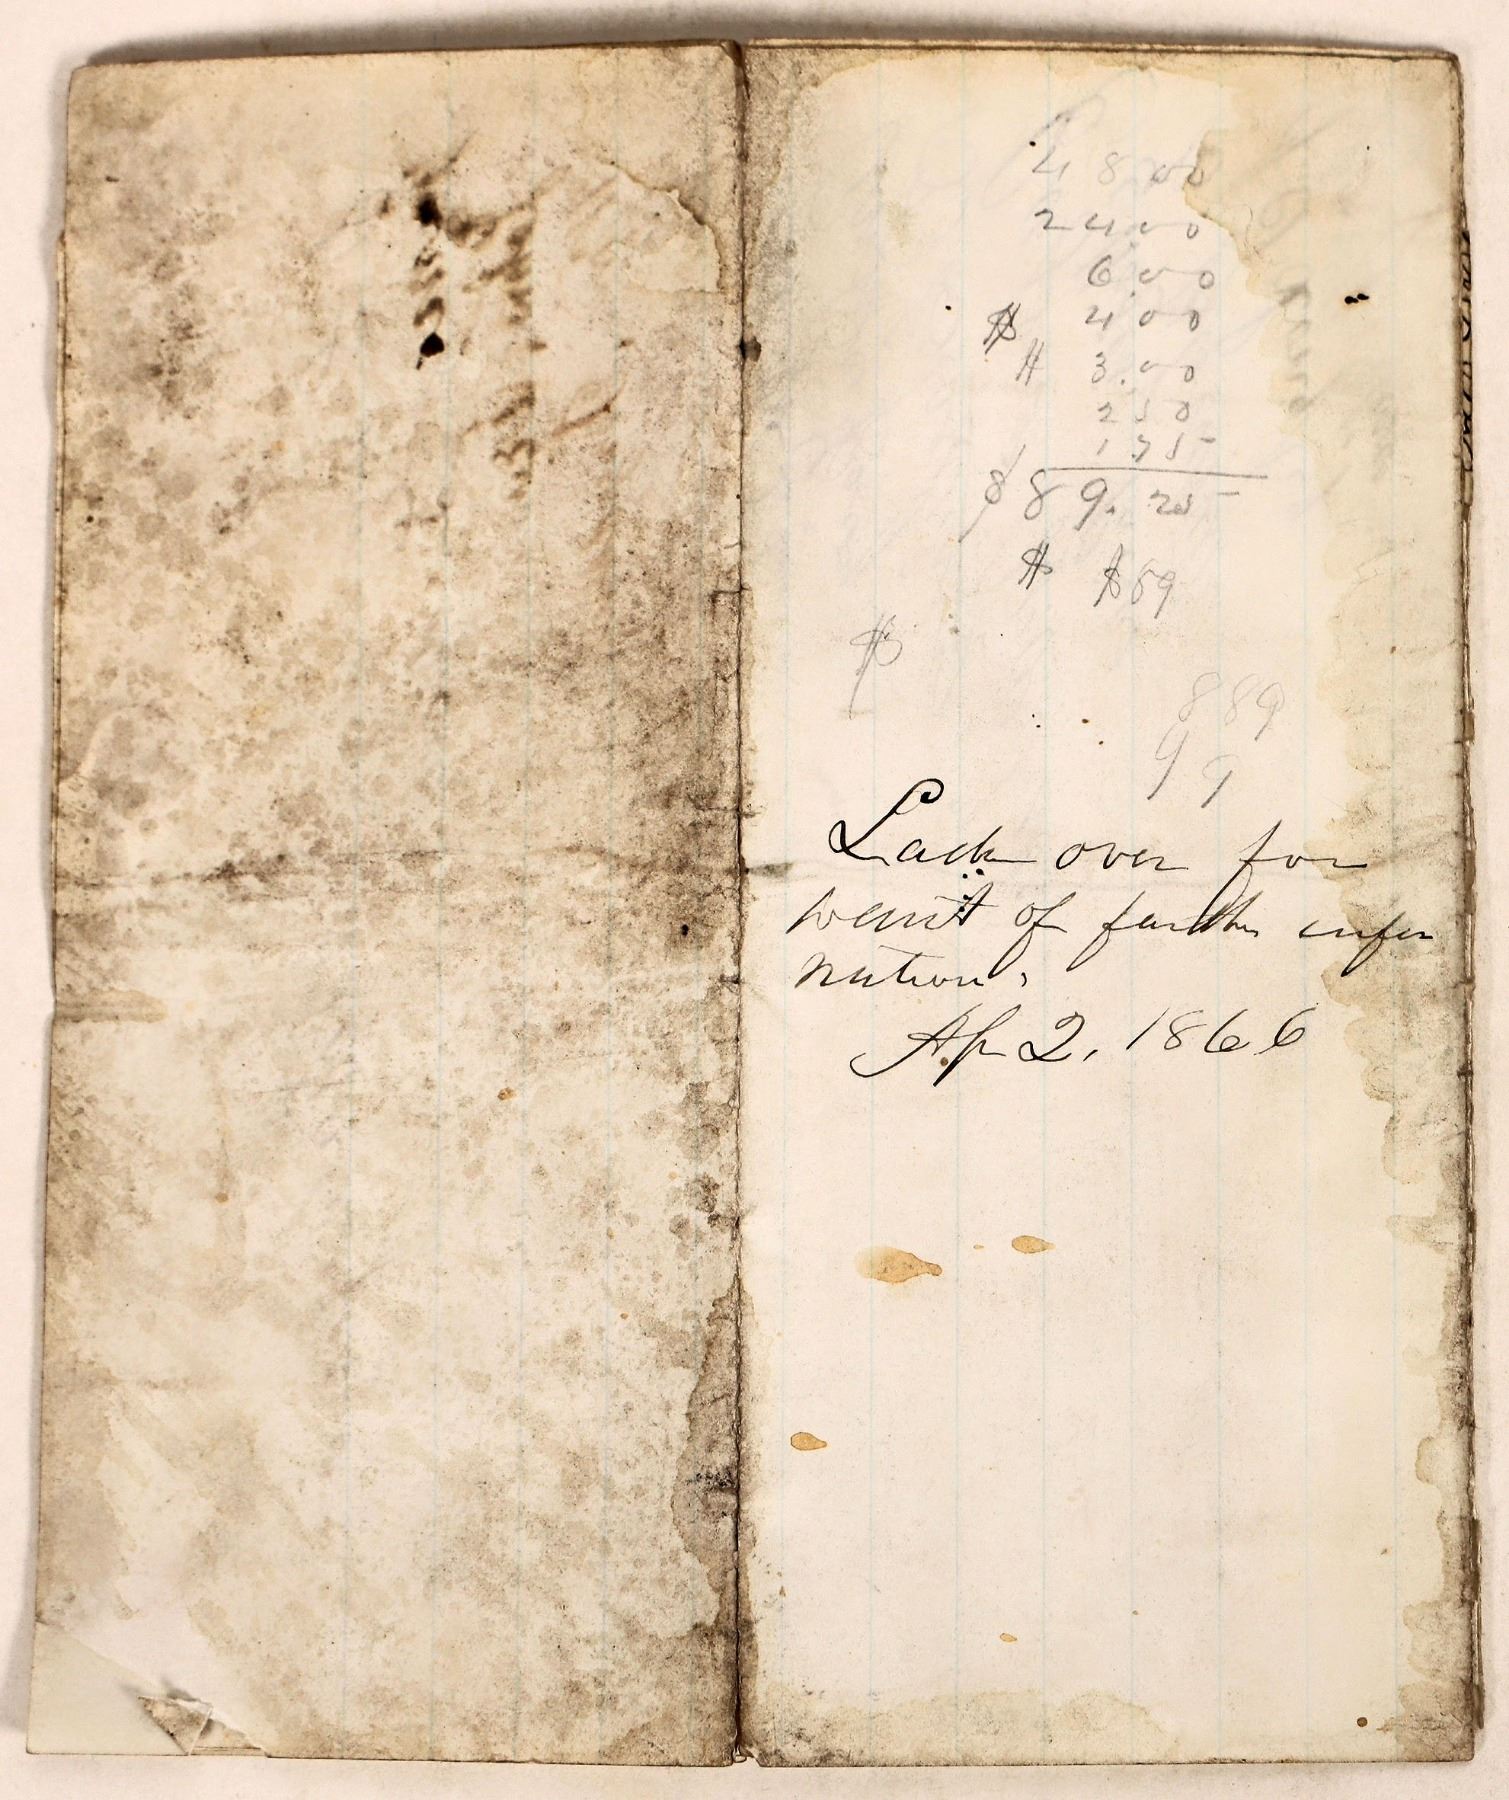 48 00
24 00
6.00
$ 4 00
$ 3.00
2 50
1 75
$ 89.25
$ $89
$
889
99
Lack over for
want of further infor
mation.
Ap 2, 1866